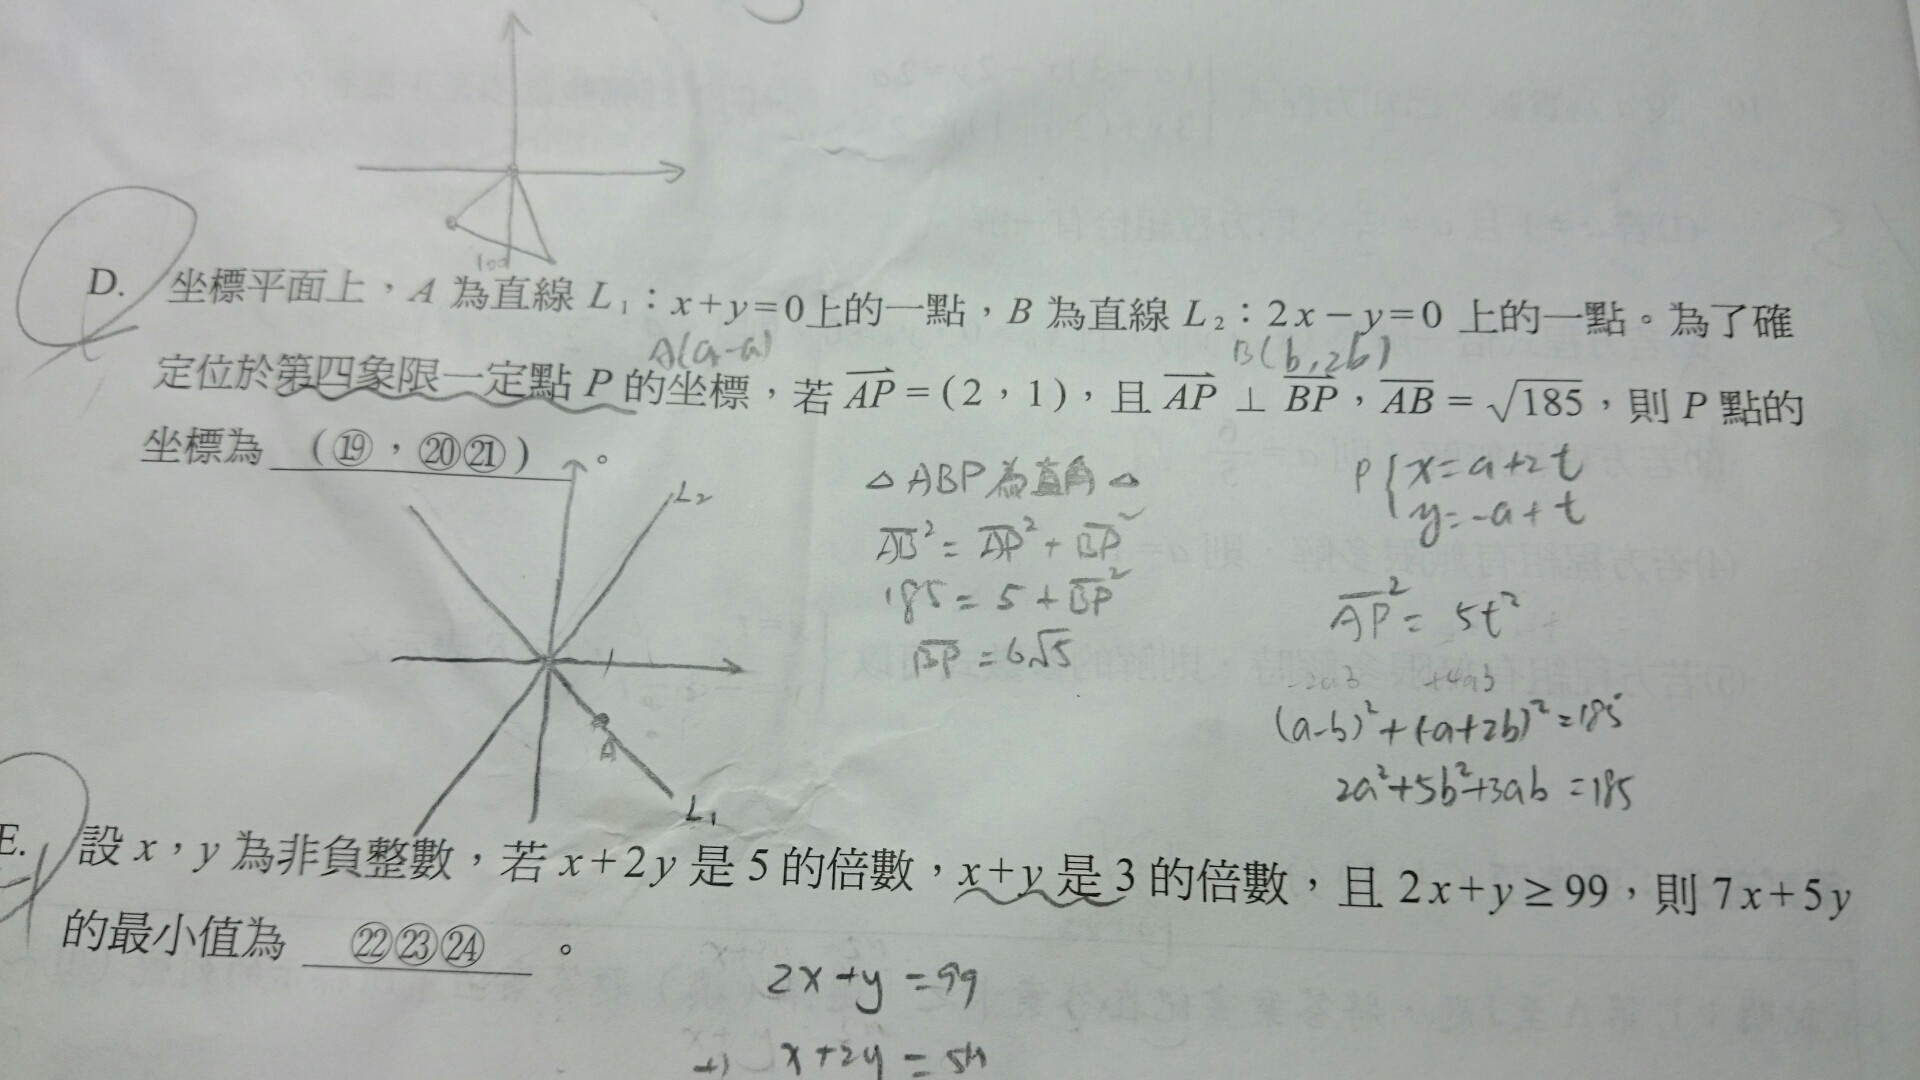 D. 坐標平面上，A 為直線 L₁：x+y=0上的一點，B 為直線 L₂：2x－y=0 上的一點。為了確
A(a,-a) B(b,2b)
定位於第四象限一定點 P 的坐標，若 \overrightarrow{AP}=(2，1)，且 \overrightarrow{AP} ⊥ \overrightarrow{BP}，\overline{AB}=√185，則 P 點的
坐標為 (⑲，⑳㉑) 。
L₂
△ABP為直角△
\overline{AB}²=\overline{AP}²+\overline{BP}²
185=5+\overline{BP}²
\overline{BP}=6√5
P{x=a+2t
y=-a+t
\overline{AP}²=5t²
-2ab +4ab
(a-b)²+(-a+2b)²=185
2a²+5b²+3ab=185
A
L₁
E. 設 x，y 為非負整數，若 x+2y 是 5 的倍數，x+y 是 3 的倍數，且 2x+y≥99，則 7x+5y
的最小值為 ㉒㉓㉔ 。
2x+y=99
+) x+2y=5n